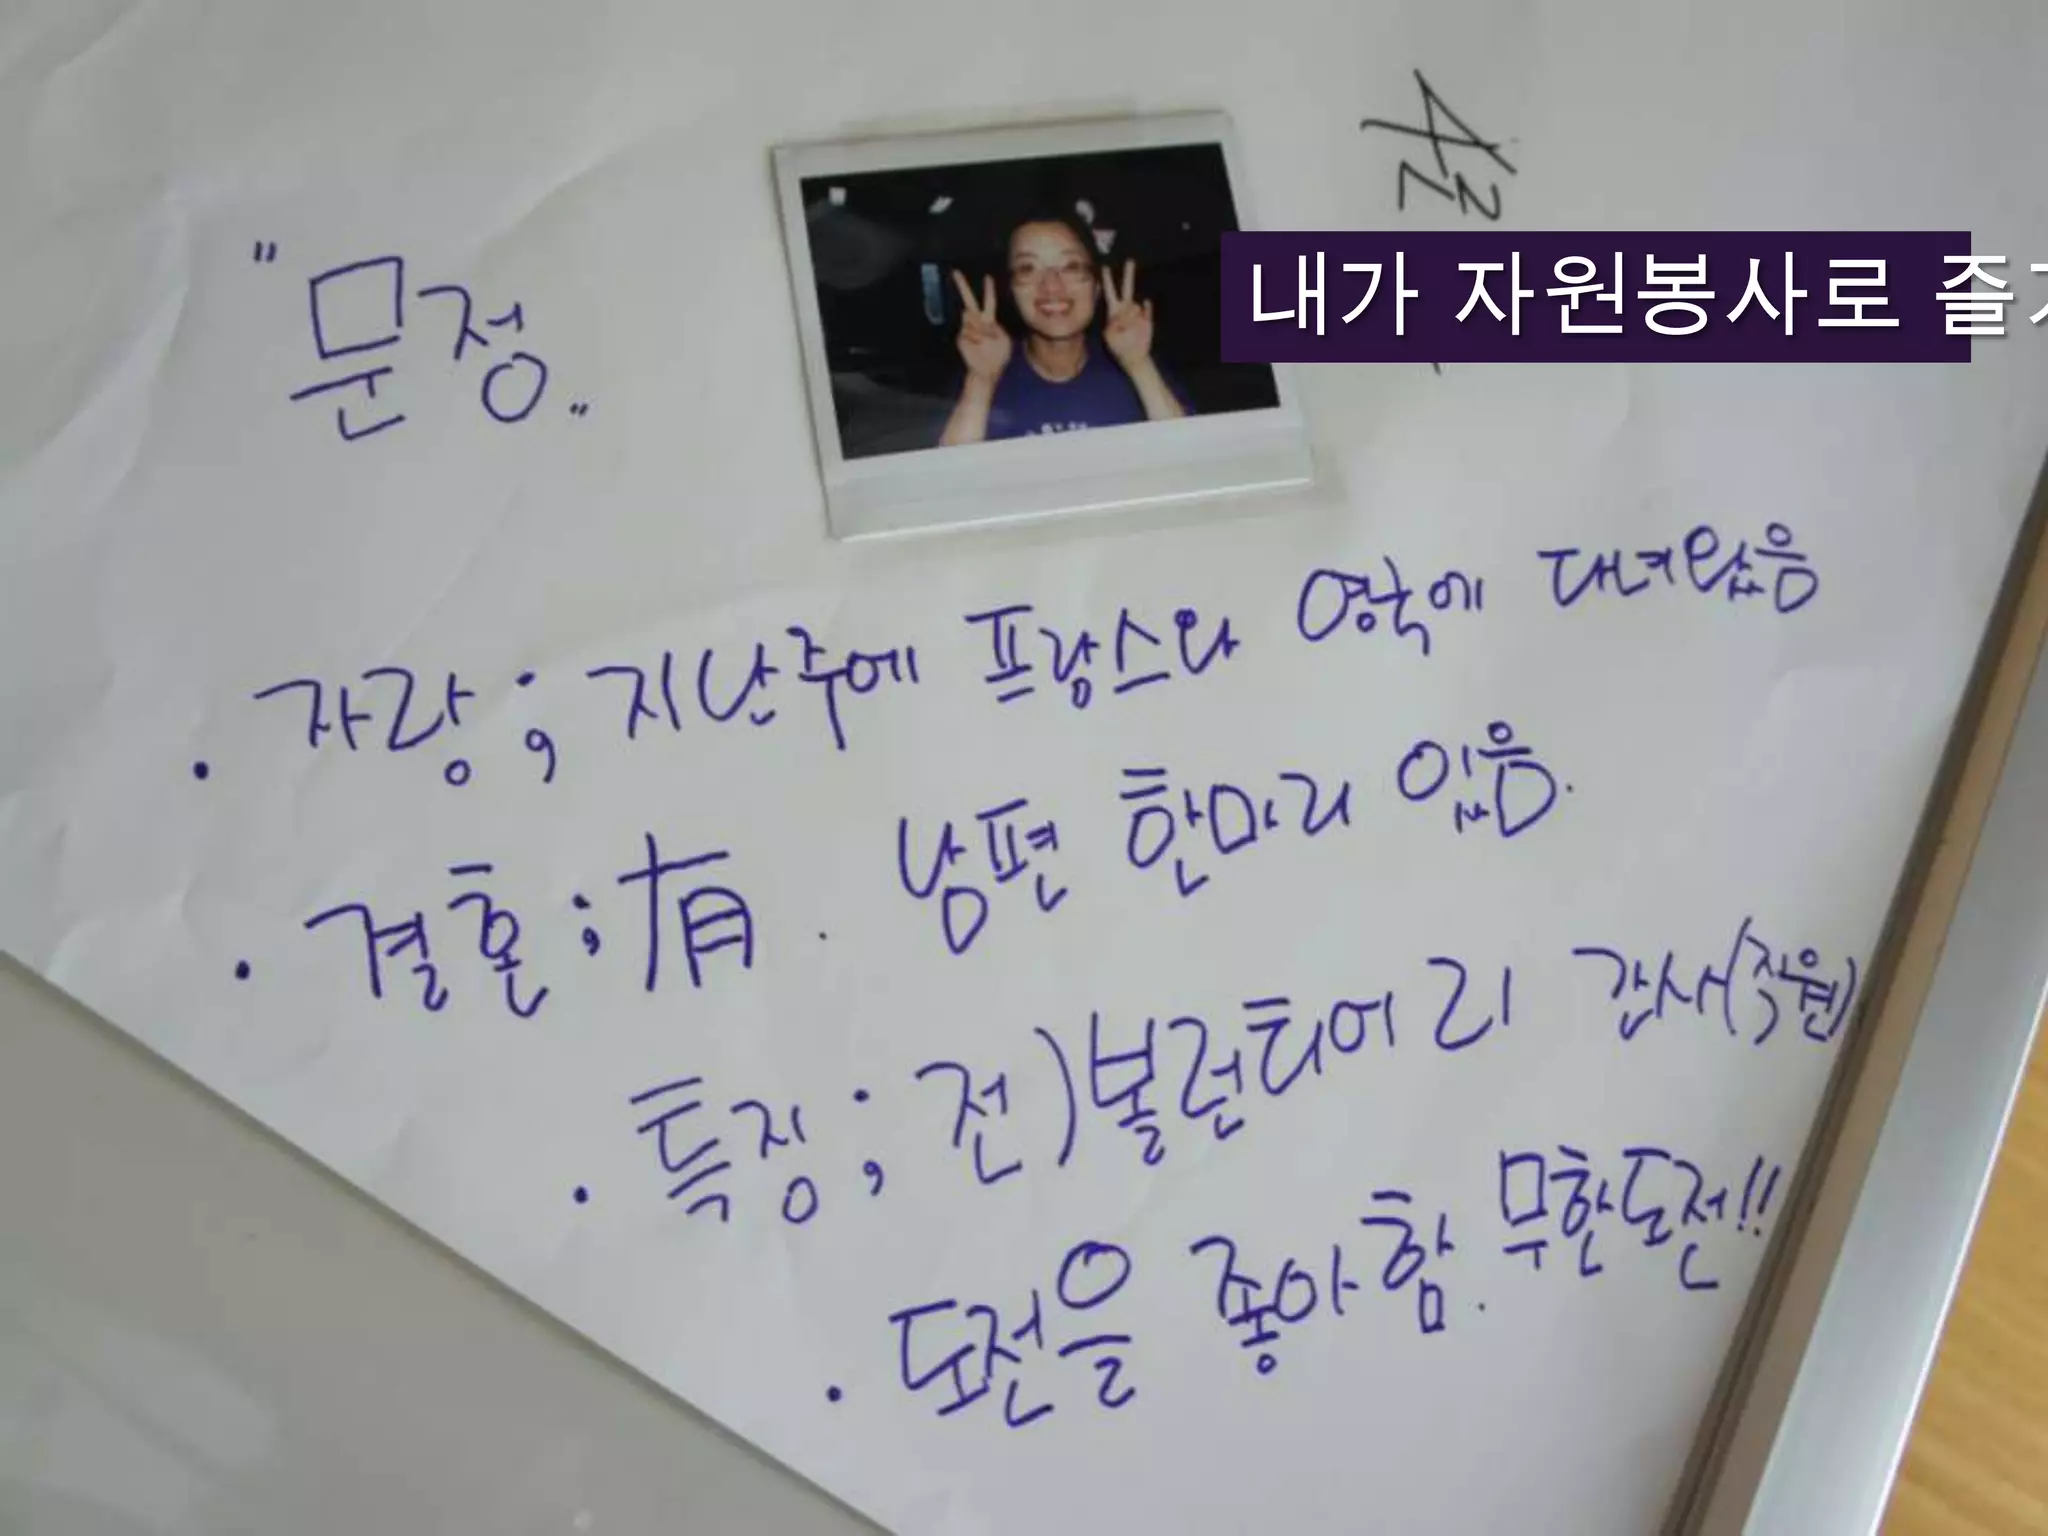 "문정"
내가 자원봉사로 즐
. 자랑; 지난주에 프랑스와 영국에 대녀왔음
. 결혼; 有. 남편 한마리 있음.
. 특징; 전)볼런티어리 간사(직원)
. 도전을 좋아함. 무한도전!!